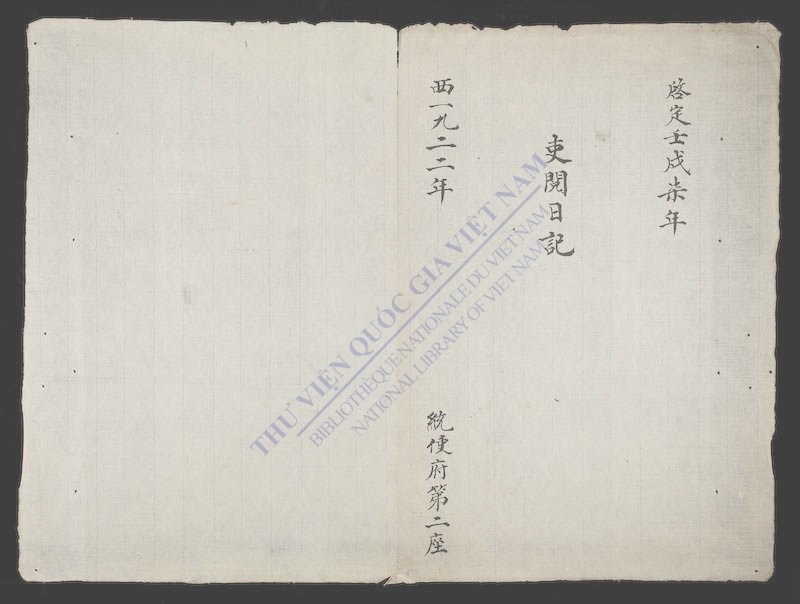 啓定壬戌柒年
吏閱日記
西一九二二年
統使府第二座
THƯ VIỆN QUỐC GIA VIỆT NAM
BIBLIOTHÈQUE NATIONALE DU VIETNAM
NATIONAL LIBRARY OF VIETNAM